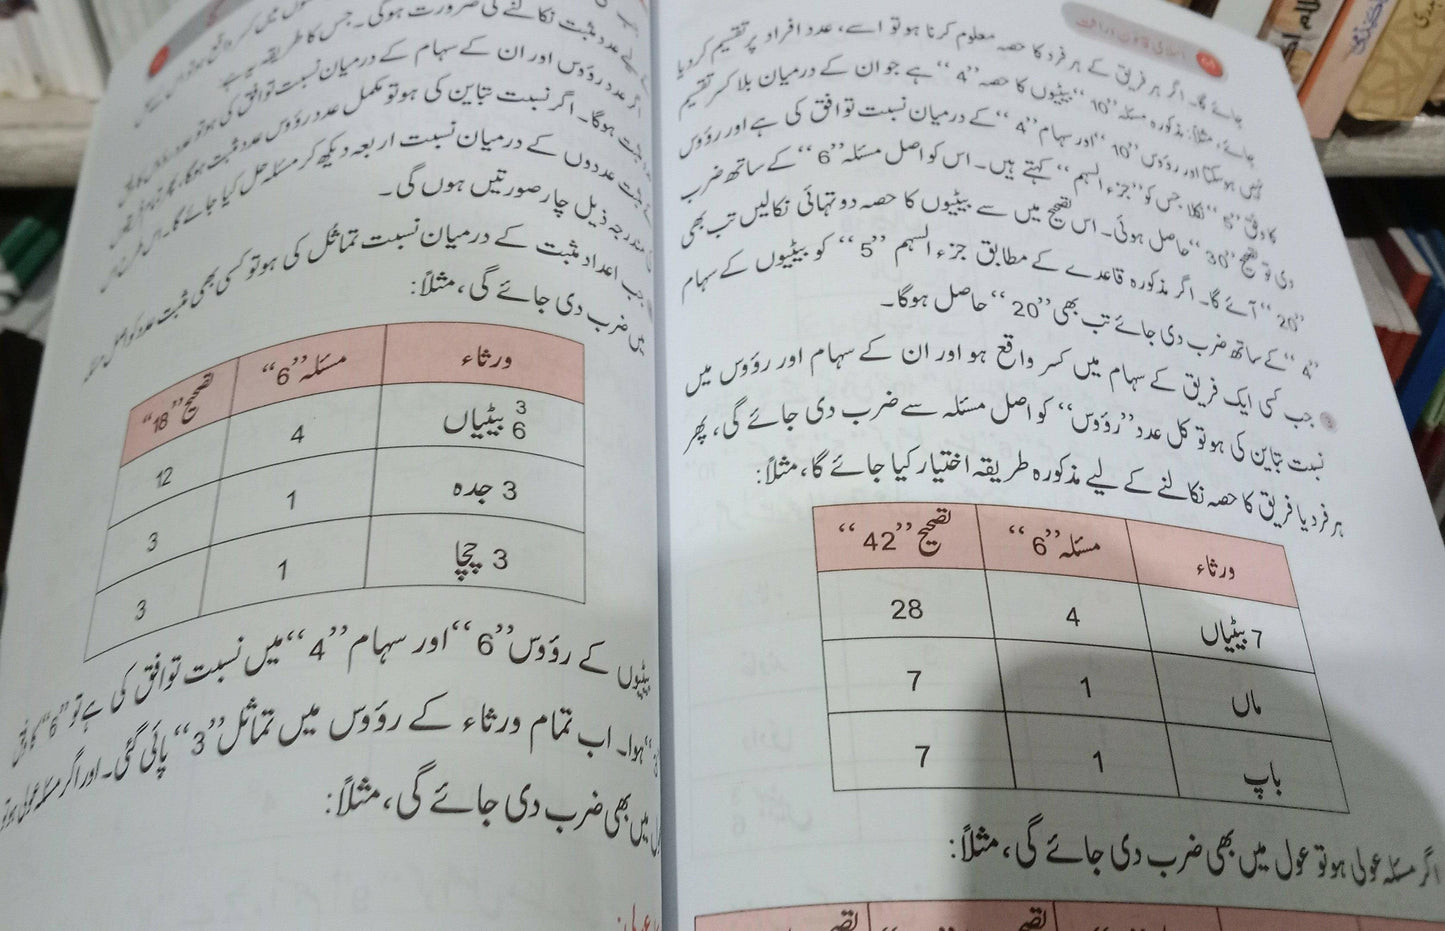 اسلامی قانون وراثت
جائے گا۔ اگر ہر فریق کے ہر فرد کا حصہ معلوم کرنا ہو تو اسے، عدد افراد پر تقسیم کر دیا
جائے، مثلاً: مذکورہ مسئلہ ”10“ بیٹیوں کا حصہ ”4“ ہے جو ان کے درمیان بلا کسر تقسیم
نہیں ہو سکتا اور رؤوس ”10“ اور سہام ”4“ کے درمیان نسبت توافق کی ہے اور رؤوس
کا وفق ”5“ نکلا جس کو ”جزء السہم“ کہتے ہیں۔ اس کو اصل مسئلہ ”6“ کے ساتھ ضرب
دی تو تصحیح ”30“ حاصل ہوئی۔ اس تصحیح میں سے بیٹیوں کا حصہ دو تہائی نکالیں تب بھی
”20“ آئے گا۔ اگر مذکورہ قاعدے کے مطابق جزء السہم ”5“ کو بیٹیوں کے سہام
”4“ کے ساتھ ضرب دی جائے تب بھی ”20“ حاصل ہوگا۔
جب کسی ایک فریق کے سہام میں کسر واقع ہو اور ان کے سہام اور رؤوس میں
نسبت تباین کی ہو تو کل عدد ”رؤوس“ کو اصل مسئلہ سے ضرب دی جائے گی، پھر
ہر فرد یا فریق کا حصہ نکالنے کے لیے مذکورہ طریقہ اختیار کیا جائے گا، مثلاً:
ورثاء مسئلہ ”6“ تصحیح ”42“
7 بیٹیاں 4 28
ماں 1 7
باپ 1 7
اگر مسئلہ عولی ہو تو عول میں بھی ضرب دی جائے گی، مثلاً:
لیے عدد مثبت نکالنے کی ضرورت ہوگی۔ جس کا طریقہ یہ ہے
اگر عدد رؤوس اور ان کے سہام کے درمیان نسبت توافق کی ہو تو
مثبت ہوگا۔ اگر نسبت تباین کی ہو تو مکمل عدد رؤوس عدد مثبت ہوگا،
مثبت عددوں کے درمیان نسبت اربعہ دیکھ کر مسئلہ حل کیا جائے گا۔ اس طرح
مندرجہ ذیل چار صورتیں ہوں گی۔
جب اعداد مثبت کے درمیان نسبت تماثل کی ہو تو کسی بھی مثبت عدد کو اصل مسئلہ
میں ضرب دی جائے گی، مثلاً:
ورثاء مسئلہ ”6“ تصحیح ”18“
3
6 بیٹیاں 4 12
3 جدہ 1 3
3 چچا 1 3
بیٹیوں کے رؤوس ”6“ اور سہام ”4“ میں نسبت توافق کی ہے تو ”6“ کا وفق
ہوا۔ اب تمام ورثاء کے رؤوس میں تماثل ”3“ پائی گئی۔ اور اگر مسئلہ عولی ہو تو
میں بھی ضرب دی جائے گی، مثلاً: